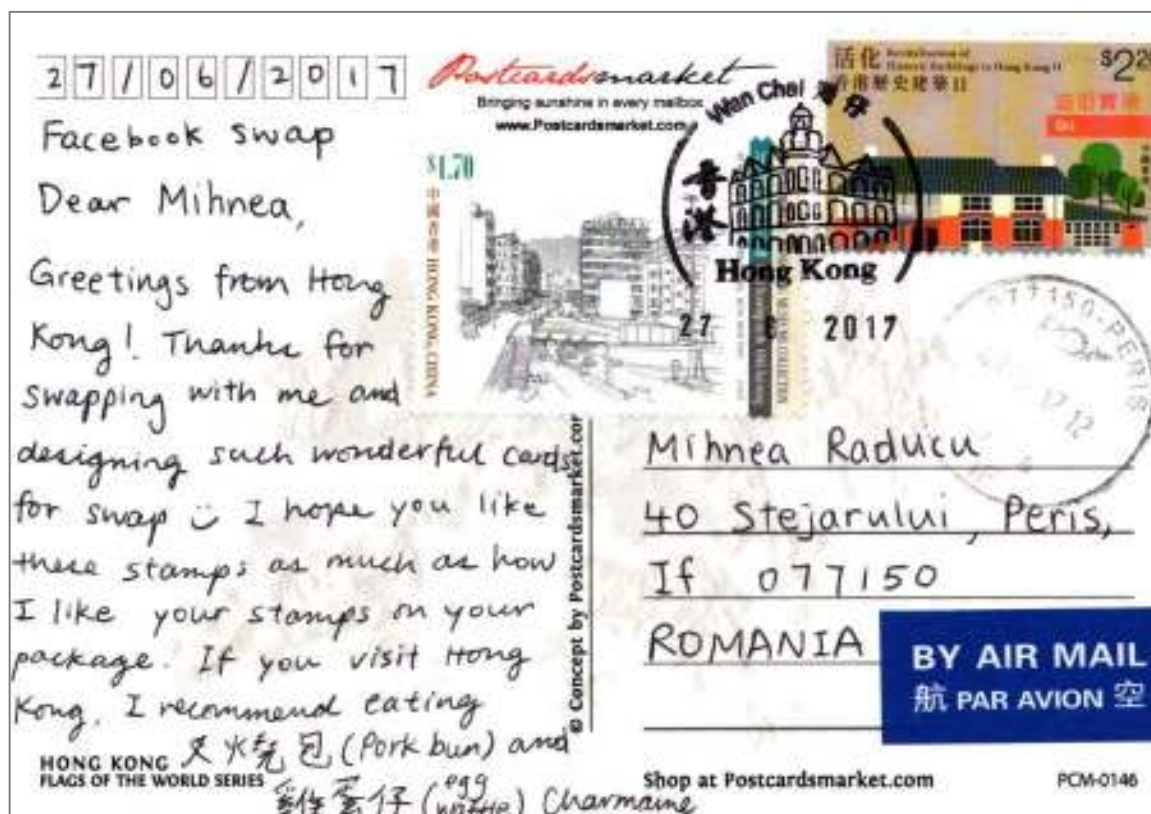 27/06/2017
Facebook swap
Dear Mihnea,
Greetings from Hong
Kong! Thanks for
swapping with me and
designing such wonderful cards
for swap I hope you like
these stamps as much as how
I like your stamps on your
package. If you visit Hong
Kong, I recommend eating
叉燒包 (Pork bun) and
雞蛋仔 (egg
waffle) Charmaine
HONG KONG
FLAGS OF THE WORLD SERIES
Postcardsmarket
Bringing sunshine in every mailbox
www.Postcardsmarket.com
$1.70
中國香港 HONG KONG, CHINA
Wan Chai
香港
Hong Kong
27 6 2017
活化 Revitalisation of
Historic Buildings in Hong Kong II
香港歷史建築II
$2.20
077150-PERIS
© Concept by Postcardsmarket.com
Mihnea Raducu
40 Stejarului, Peris,
If 077150
ROMANIA
BY AIR MAIL
航 PAR AVION 空
Shop at Postcardsmarket.com
PCM-0146